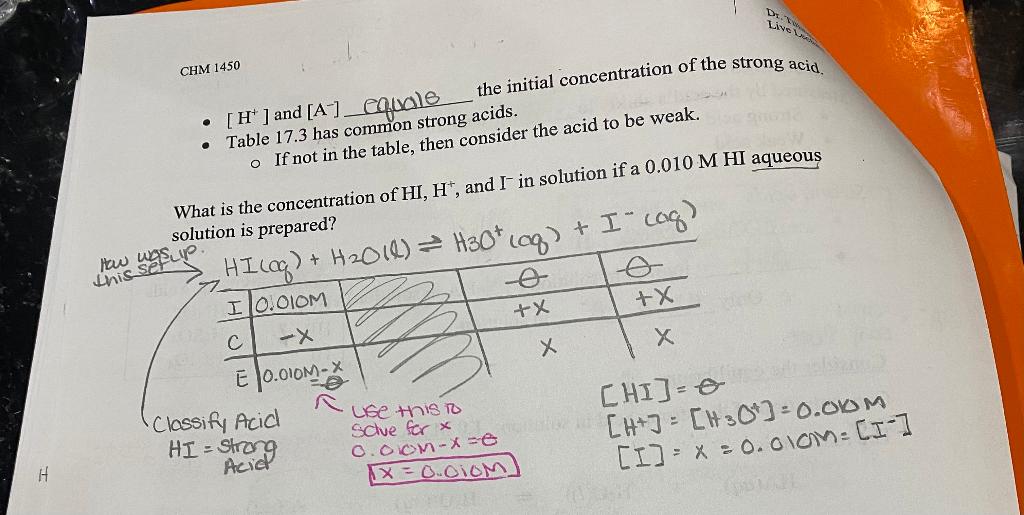 Dr.
Live
CHM 1450
• [H⁺] and [A⁻] equals the initial concentration of the strong acid.
• Table 17.3 has common strong acids.
o If not in the table, then consider the acid to be weak.
What is the concentration of HI, H⁺, and I⁻ in solution if a 0.010 M HI aqueous
solution is prepared?
How was
this set up.
HI(aq) + H2O(l) ⇌ H3O⁺(aq) + I⁻(aq)
I 0.010M 0 0
C -x +x +x
E 0.010M-x x x
= 0
Classify Acid
HI = Strong
Acid
use this to
solve for x
0.010M-x=0
x = 0.010M
[HI] = 0
[H+] = [H3O+] = 0.010M
[I] = x = 0.010M = [I⁻]
H